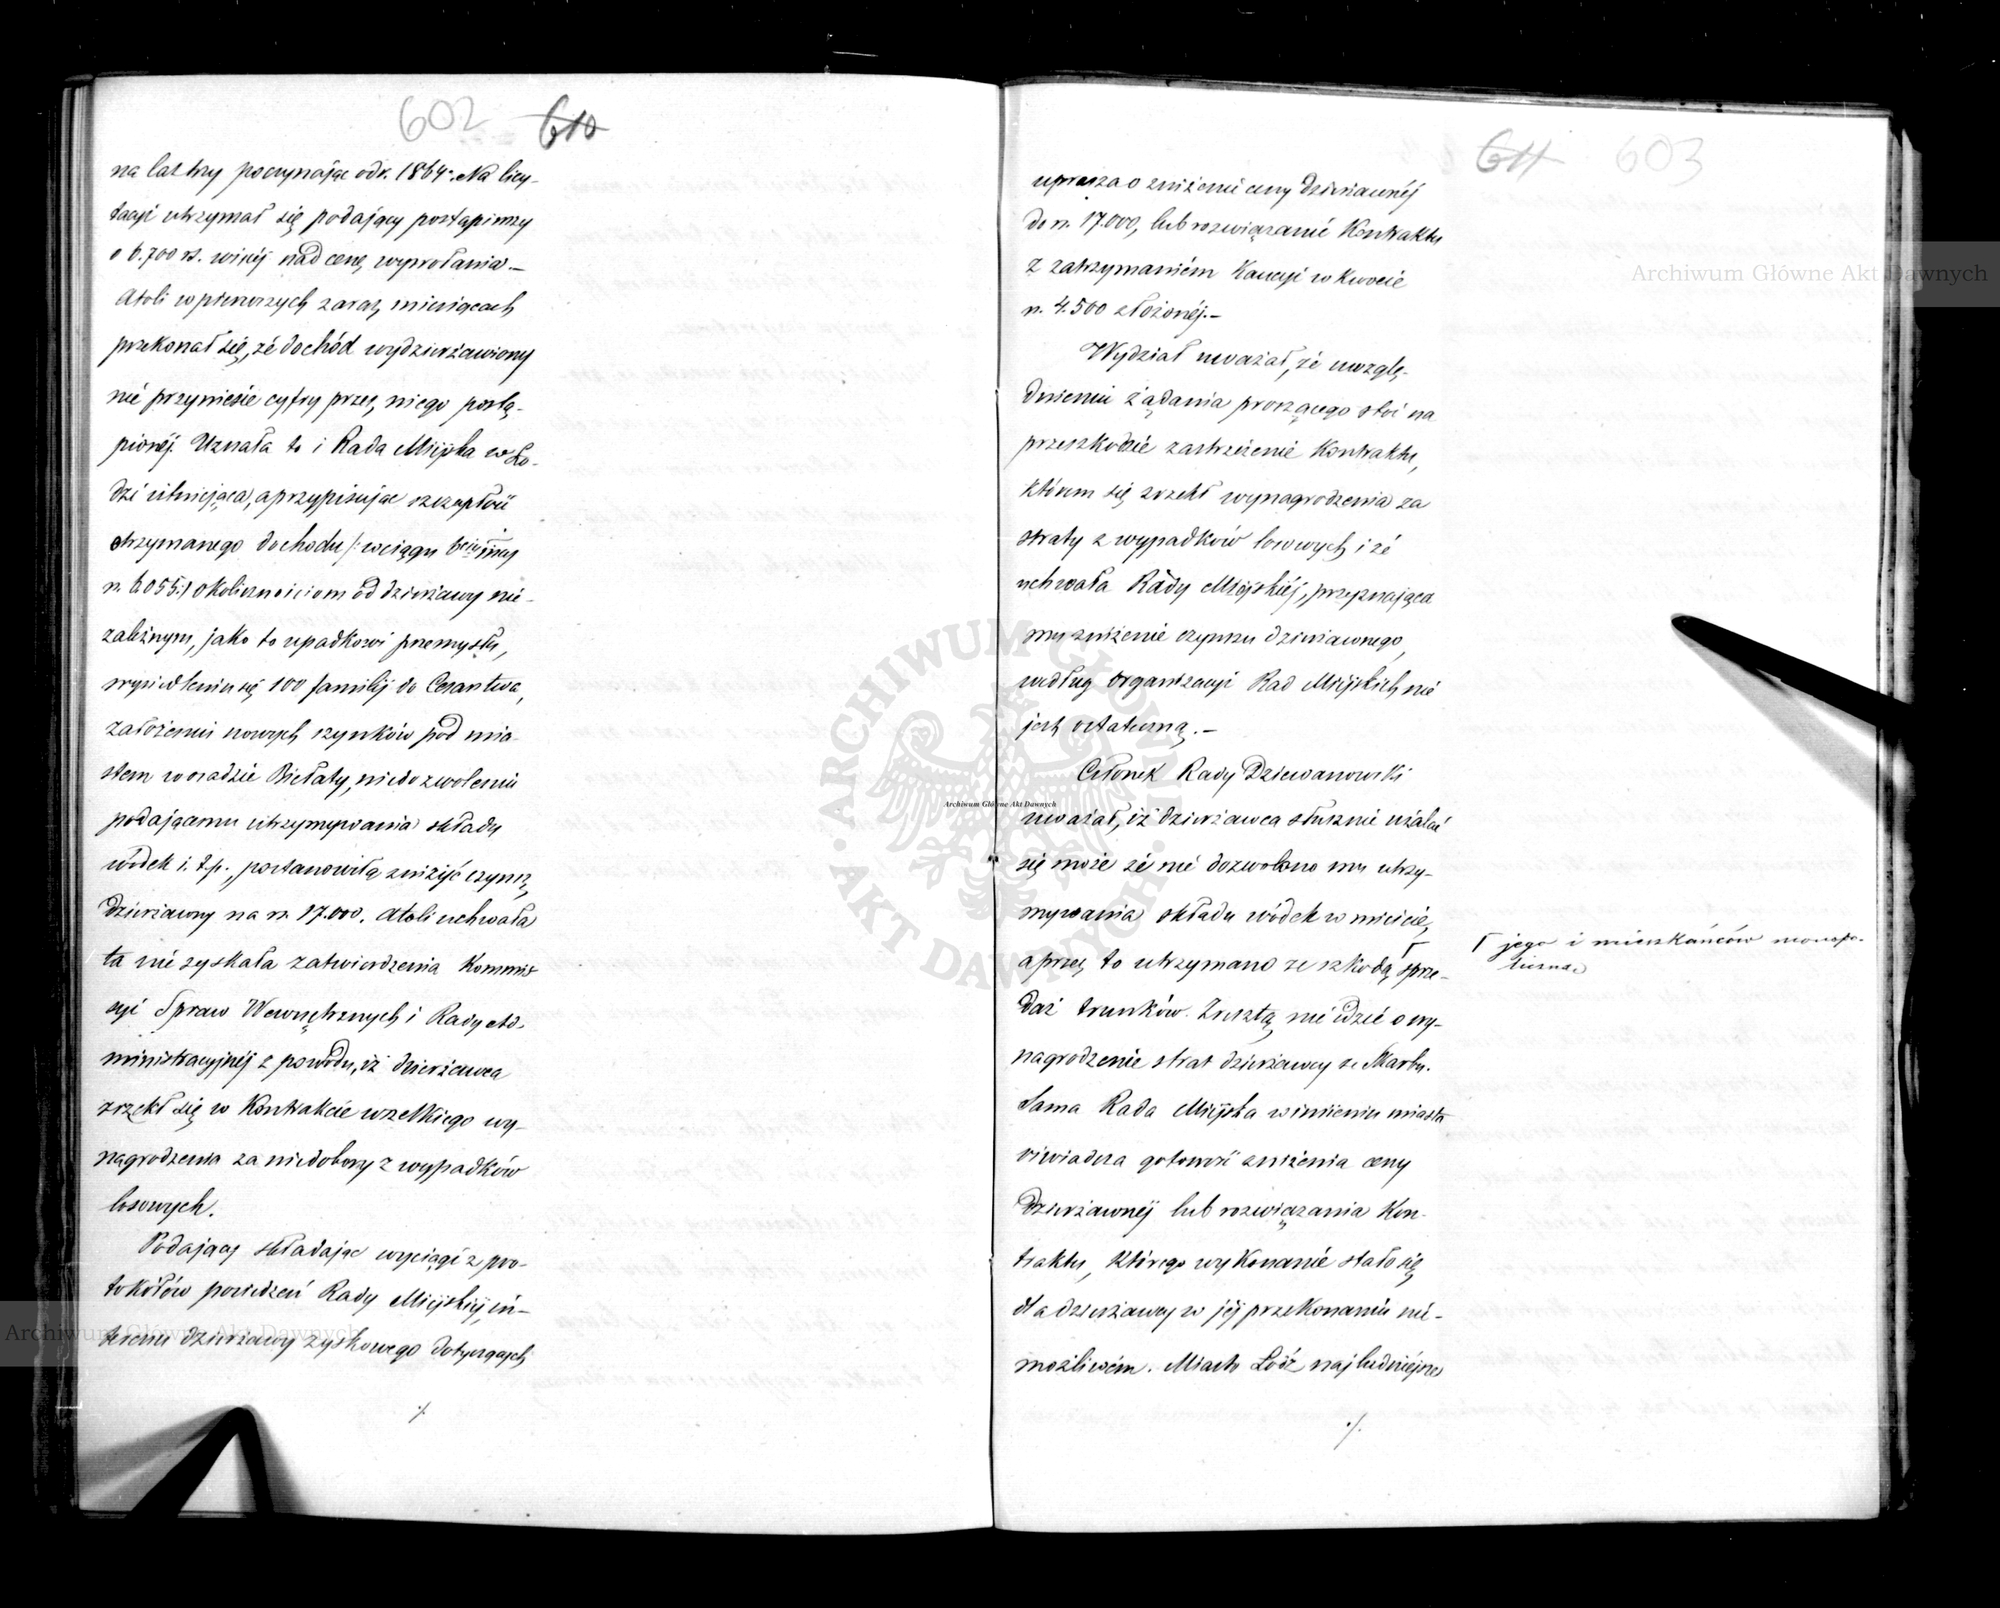 602 610
na lat trzy poczynając od r. 1864. Na licy-
tacyi utrzymał się podający postąpiwszy
o 6.700 rs. więcéj nad cenę wywołania.—
Atoli w pierwszych zaraz miesiącach
przekonał się, że dochód wydzierżawiony
nie przyniesie cyfry przez niego postą-
pionéj. Uznała to i Rada Miejska w Ło-
dzi istniejąca, a przypisując szczupłość
otrzymanego dochodu /: w ciągu
rs. 6055:/ okolicznościom od dzierżawy nie-
zależnym, jako to upadkowi przemysłu,
wysiedleniu się 100 familij do Cesarstwa,
założeniu nowych szynków pod mia-
stem w osadzie Bałuty, niedozwoleniu
podającemu utrzymywania składu
wódek i. t. p., postanowiła zniżyć czynsz
dzierżawny na rs. 17.000. Atoli uchwała
ta nie zyskała zatwierdzenia Kommis
syi Spraw Wewnętrznych i Rady Ad-
ministracyjnéj z powodu, iż dzierżawca
zrzekł się w Kontrakcie wszelkiego wy-
nagrodzenia za niedobory z wypadków
losowych.
Podający składając wyciągi z pro-
tokółów posiedzeń Rady Miejskiéj, in-
teresu dzierżawy zyskowego dotyczących
./.
611 603
uprasza o zniżenie ceny dzierżawnéj
do rs. 17.000, lub rozwiązanie Kontraktu
z zatrzymaniem Kaucyi w kwocie
rs. 4.500 złożonéj.—
Wydział uważał, że uwzglę-
dnieniu żądania proszącego stoi na
przeszkodzie zastrzeżenie Kontraktu,
którem się zrzekł wynagrodzenia za
straty z wypadków losowych i że
uchwała Rady Miejskiéj, przyznająca
mu zniżenie czynszu dzierżawnego,
według organizacyi Rad Miejskich nie
jest ostateczną.—
Członek Rady Dziewanowski
uważał, iż dzierżawca słusznie użalać
się może że nie dozwolono mu utrzy-
mywania składu wódek w mieście,
a przez to utrzymano ze szkodą Γ sprze-
daż trunków. Zresztą nie idzie o wy-
nagrodzenie strat dzierżawcy ze Skarbu.
Sama Rada Miejska w imieniu miasta
oświadcza gotowość zniżenia ceny
dzierżawnéj lub rozwiązania Kon-
traktu, którego wykonanie stało się
dla dzierżawcy w jéj przekonaniu nie-
możliwém. Miasto Łódź najludniejsze
./.
Γ jego i mieszkańców monopo-
liczną
Archiwum Główne Akt Dawnych
Archiwum Główne Akt Dawnych
Archiwum Główne Akt Dawnych
ARCHIWUM GŁÓWNE · AKT DAWNYCH ·